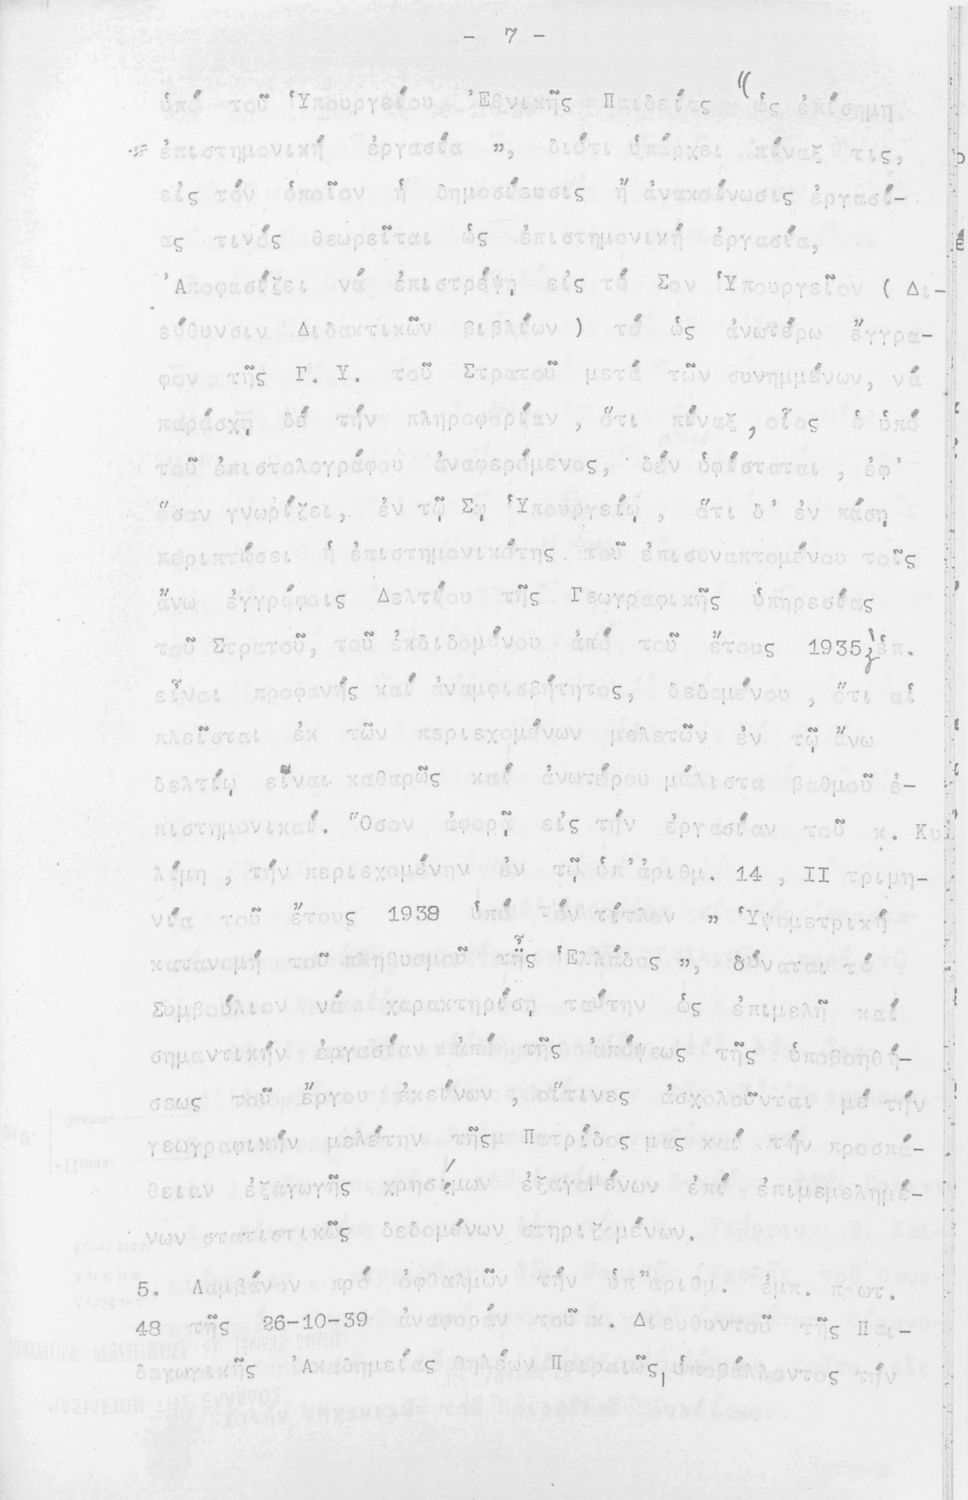 - 7 -
ὑπό τοῦ Ὑπουργείου Ἐθνικῆς Παιδείας " ὡς ἐπίσημη
ἐπιστημονική ἐργασία ", διότι ὑπάρχει πίναξ τις,
εἰς τόν ὁποῖον ἡ δημοσίευσις ἤ ἀνακοίνωσις ἐργασί-
ας τινός θεωρεῖται ὡς ἐπιστημονική ἐργασία,
Ἀποφασίζει νά ἐπιστρέψῃ εἰς τό Σον Ὑπουργεῖον ( Δι-
εύθυνσιν Διδακτικῶν βιβλίων ) τό ὡς ἀνωτέρω ἔγγρα-
φον τῆς Γ. Υ. τοῦ Στρατοῦ μετά τῶν συνημμένων, νά
παράσχῃ δέ τήν πληροφορίαν , ὅτι πίναξ, οἷος ὁ ὑπό
τοῦ ἐπιστολογράφου ἀναφερόμενος, δέν ὑφίσταται , ἐφ'
ὅσον γνωρίζει, ἐν τῷ Σῳ Ὑπουργείῳ , ὅτι δ' ἐν πάσῃ
περιπτώσει ἡ ἐπιστημονικότης τοῦ ἐπισυναπτομένου τοῖς
ἄνω ἐγγράφοις Δελτίου τῆς Γεωγραφικῆς ὑπηρεσίας
τοῦ Στρατοῦ, τοῦ ἐκδιδομένου ἀπό τοῦ ἔτους 1935 ἑπ.
εἶναι προφανής καί ἀναμφισβήτητος, δεδομένου , ὅτι αἱ
πλεῖσται ἐκ τῶν περιεχομένων μελετῶν ἐν τῷ ἄνω
δελτίῳ εἶναι καθαρῶς καί ἀνωτέρου μάλιστα βαθμοῦ ἐ-
πιστημονικαί. Ὅσον ἀφορᾷ εἰς τήν ἐργασίαν τοῦ κ.
λίμη , τήν περιεχομένην ἐν τῷ ὑπ'ἀριθμ. 14 , II τριμη-
νία τοῦ ἔτους 1938 ὑπό τόν τίτλον " Ὑψομετρική
κατανομή τοῦ πληθυσμοῦ τῆς Ἑλλάδος ", δύναται τό
Συμβούλιον νά χαρακτηρίσῃ ταύτην ὡς ἐπιμελῆ καί
σημαντικήν ἐργασίαν ἀπό τῆς ἀπόψεως τῆς ὑποβοηθή-
σεως τοῦ ἔργου ἐκείνων , οἵτινες ἀσχολοῦνται μέ τήν
γεωγραφικήν μελέτην τῆς Πατρίδος μας καί τήν προσπά-
θειαν ἐξαγωγῆς χρησίμων ἐξαγομένων ἐπί ἐπιμεμελημέ-
νων στατιστικῶς δεδομένων στηριζομένων.
5. Λαμβάνον πρό ὀφθαλμῶν τήν ὑπ'ἀριθμ. ἐμπ. πρωτ.
48 τῆς 26-10-39 ἀναφοράν τοῦ κ. Διευθυντοῦ τῆς Παι-
δαγωγικῆς Ἀκαδημείας θηλέων Πειραιῶς, ὑποβάλλοντος τήν